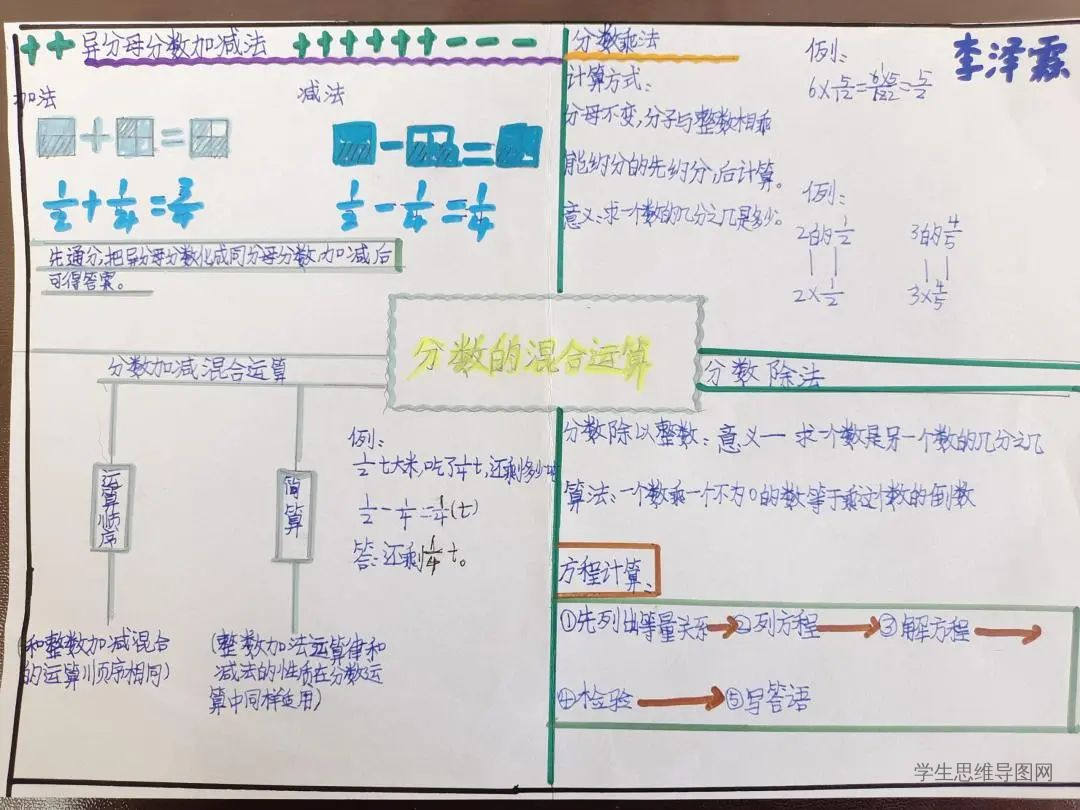 ++ 异分母分数加减法 ++++++---
加法
减法
1/2+1/4=3/4
1/2-1/4=1/4
先通分,把异分母分数化成同分母分数,加减后
可得答案。
分数乘法
计算方式:
分母不变,分子与整数相乘
能约分的先约分,后计算。
意义:求一个数的几分之几是多少。
例:
李泽霖
例:
2的1/2
3的4/5
2×1/2
3×4/5
分数的混合运算
分数加减混合运算
运算顺序
简算
(和整数加减混合
的运算顺序相同)
(整数加法运算律和
减法的性质在分数运
算中同样适用)
例:
1/2t大米,吃了1/4t,还剩多少吨
1/2-1/4=1/4(t)
答:还剩1/4t。
分数除法
分数除以整数:意义一 求一个数是另一个数的几分之几
算法:一个数乘一个不为0的数等于乘这个数的倒数
方程计算:
①先列出等量关系→②列方程→③解方程→
④检验→⑤写答语
学生思维导图网